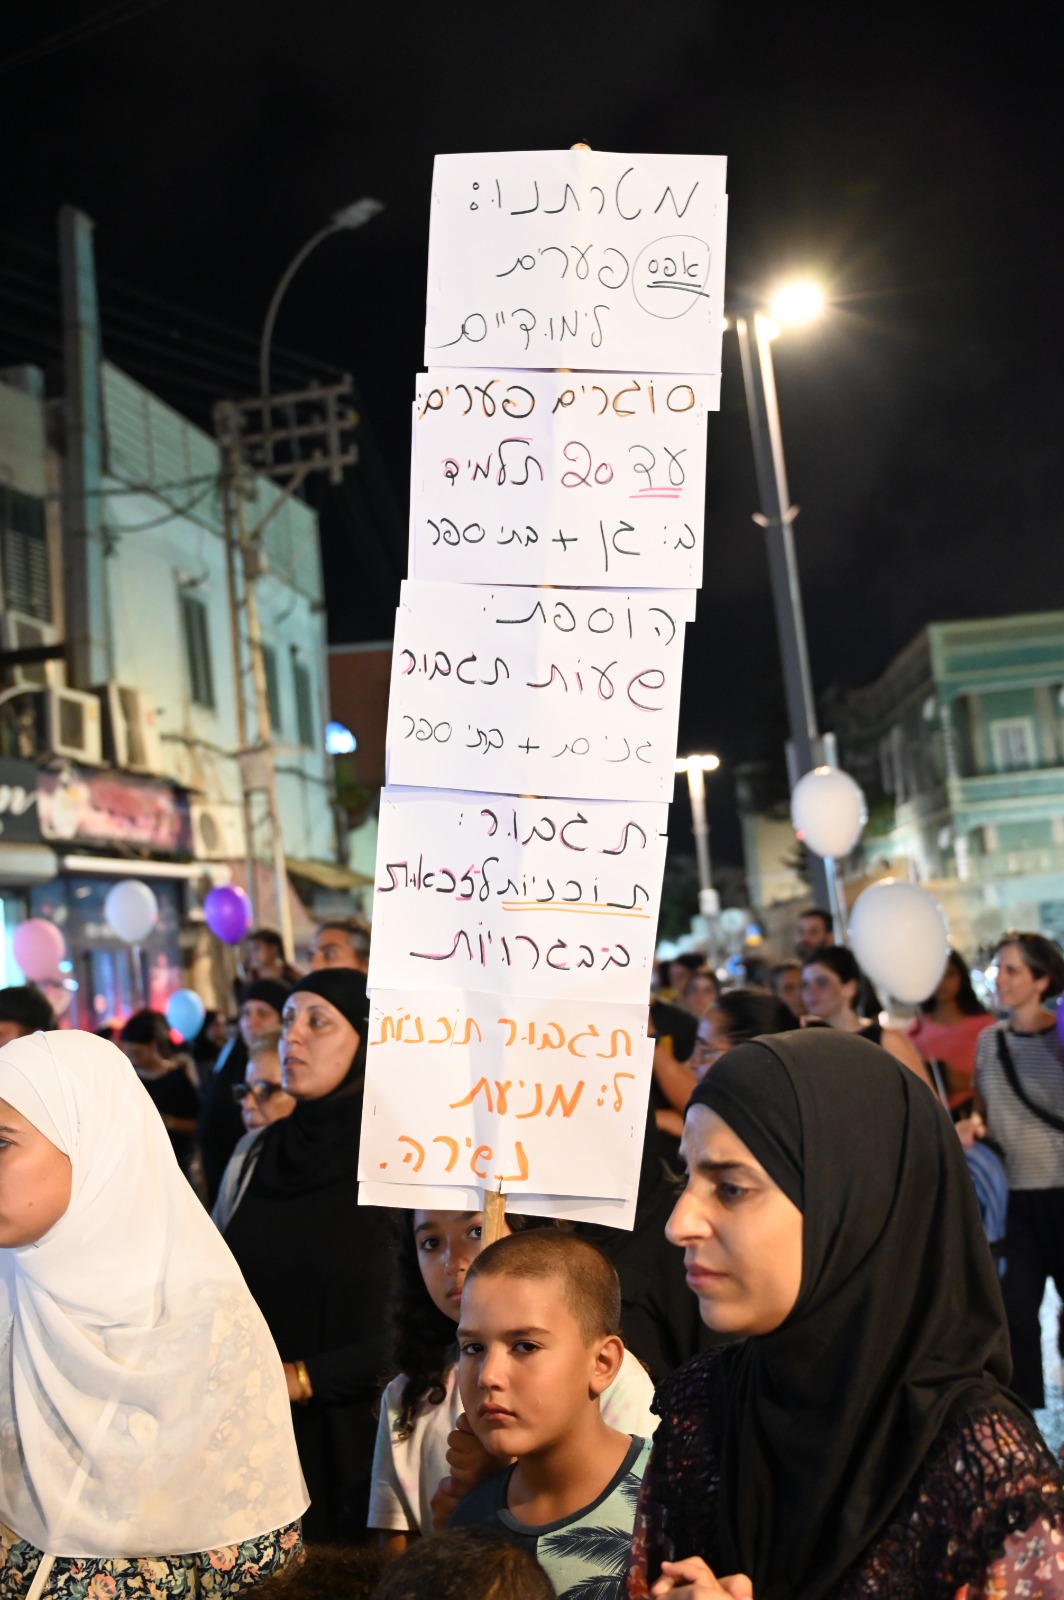 מטרתנו:
אפס פערים
לימודיים
סוגרים פערים:
עד 20 תלמיד
ב: גן + בתי ספר
הוספת:
שעות תגבור
גנים + בתי ספר
תגבור:
תוכניות לזכאות
בבגרויות
תגבור תוכניות
ל: מניעת
נשירה.